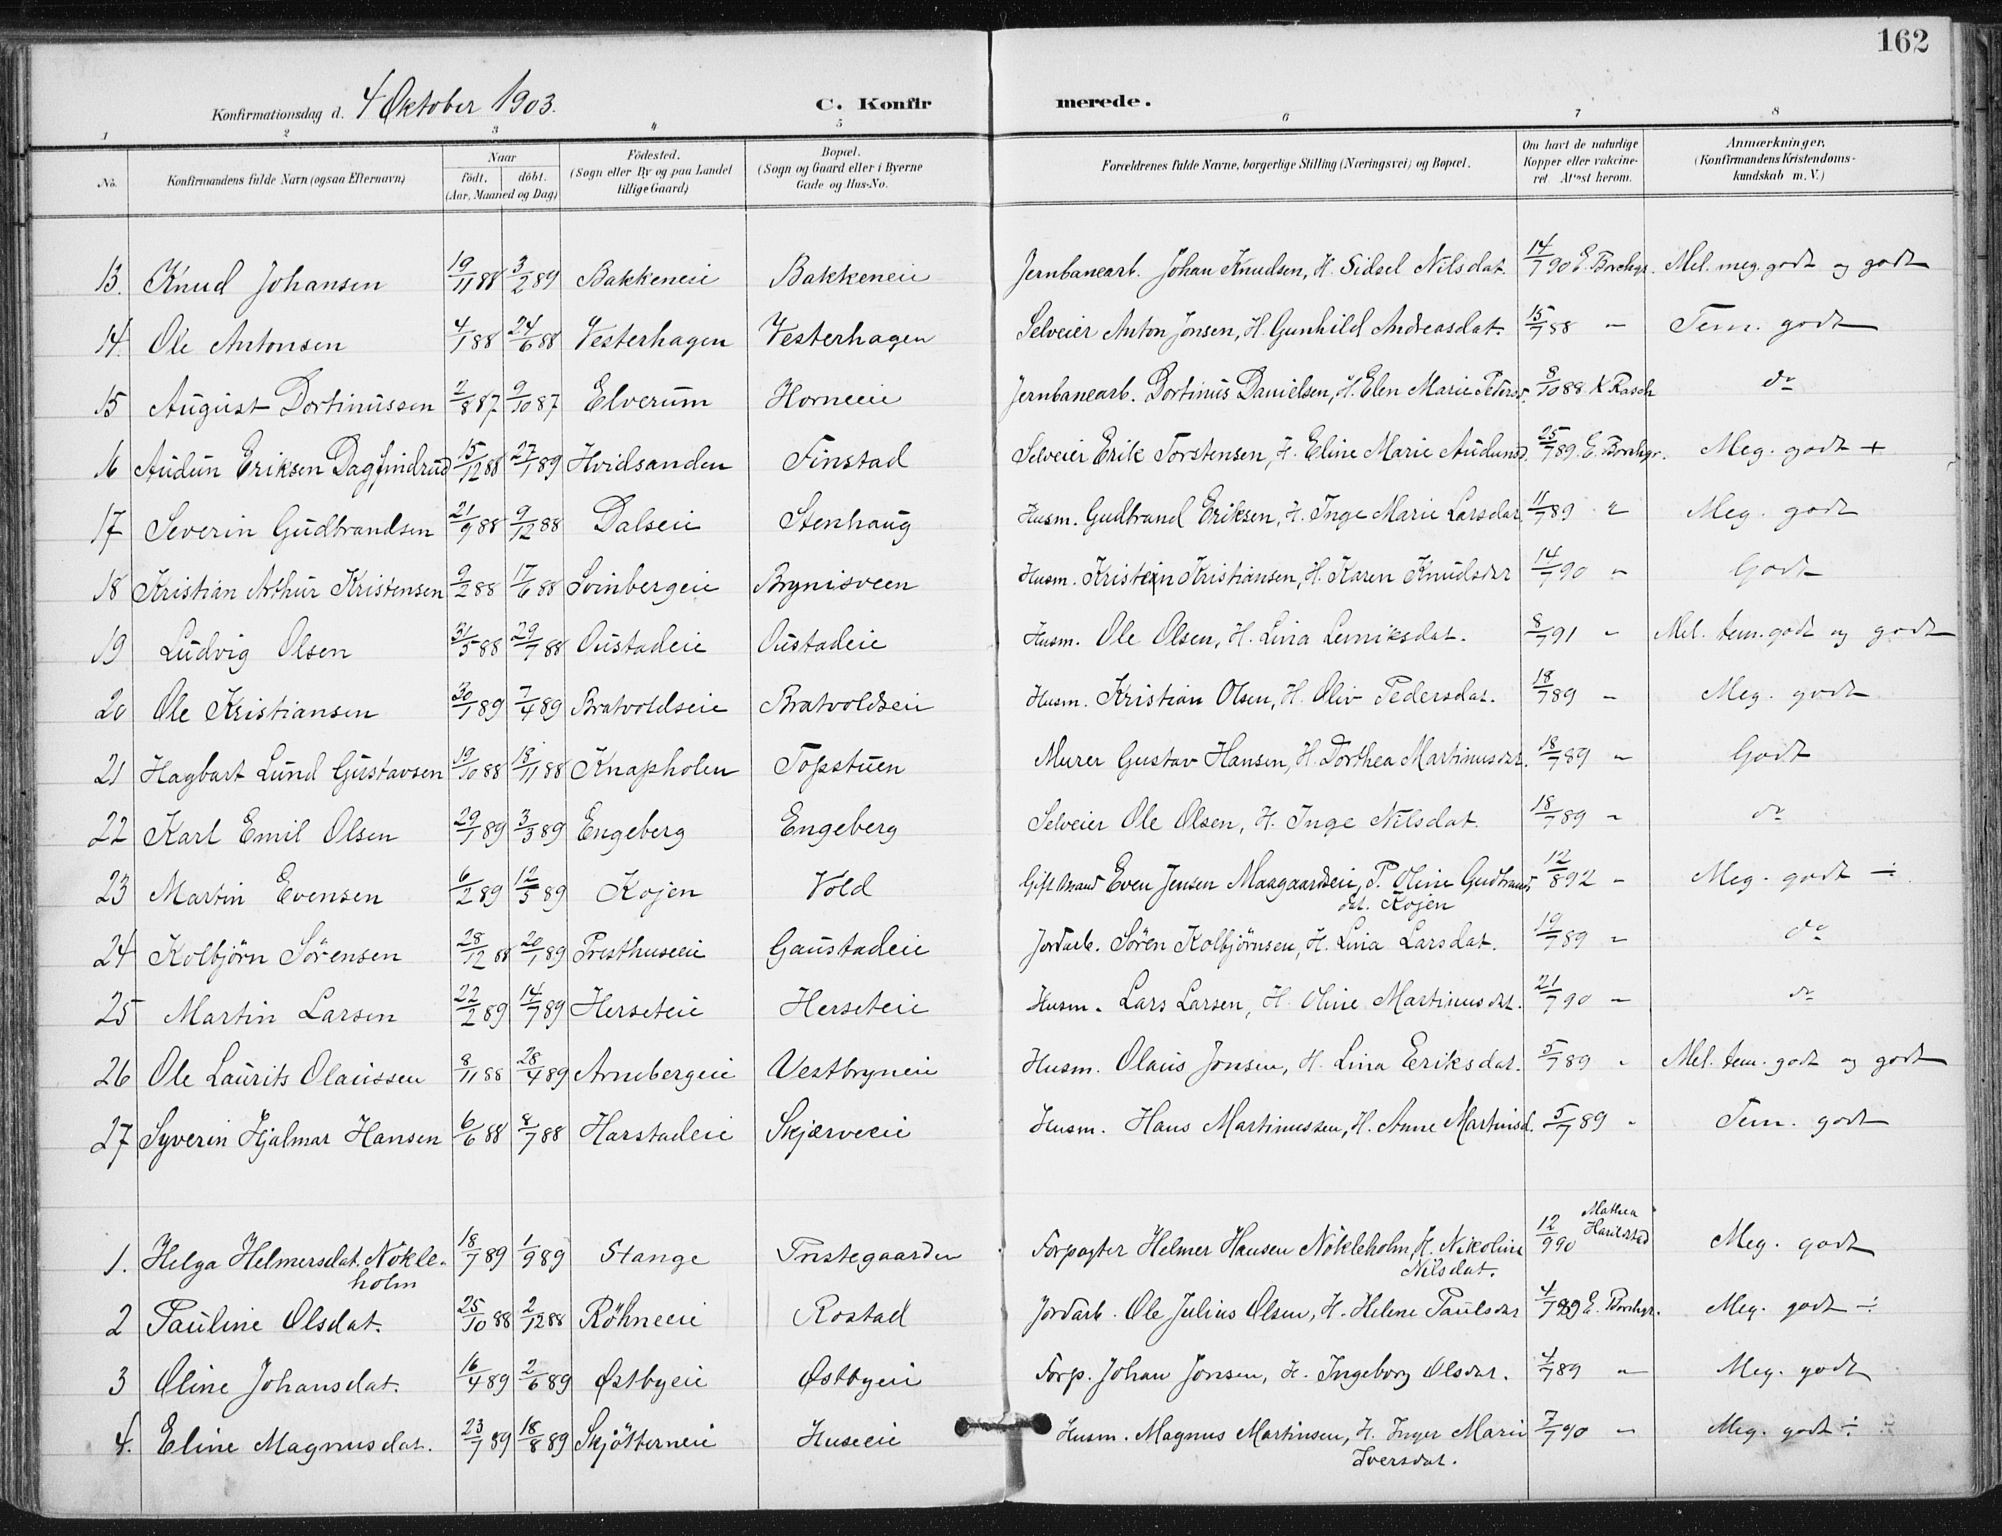 162
Konfirmationsdag d. 4 Oktober 1903. C. Konfir merede.
1 2 3 4 5 6 7 8
No. Konfirmandens fulde Navn (ogsaa Efternavn) Naar født. døbt. (Aar, Maaned og Dag) Fødested. (Sogn eller By og paa Landet tillige Gaard) Bopæl. (Sogn og Gaard eller i Byerne Gade og Hus-No. Forældrenes fulde Navne, borgerlige Stilling (Næringsvei) og Bopæl. Om havt de naturlige Kopper eller vakcineret. Attest herom. Anmærkninger. (Konfirmandens Kristendomskundskab m. V.)
13. Knud Johansen 19/11 88 3/2 89 Bakkeneie Bakkeneie Jernbanearb. Johan Knudsen, H. Sidsel Nilsdat. 14/7 90 E. Borchgr. Mel. meg. godt og godt
14. Ole Antonsen 4/1 88 24/6 88 Vesterhagen Vesterhagen Selveier Anton Jonsen, H. Gunhild Andreasdat. 15/7 88 " Tem. godt
15 August Dortinussen 2/8 87 9/10 87 Elverum Horneeie Jernbanearb. Dortinus Danielsen, H. Elen Marie Pedersd. 8/10 88 K. Rasch do
16 Audun Eriksen Dagfindrud 15/12 88 27/1 89 Hvidsanden Finstad Selveier Erik Torstensen, H. Eline Marie Audunsd. 25/7 89 E. Borchgr. Meg. godt +
17 Severin Gudbrandsen 21/9 88 9/12 88 Dalseie Stenhaug Husm. Gudbrand Eriksen, H. Inge Marie Larsdat. 11/7 89 " Meg. godt
18 Kristian Arthur Kristensen 9/2 88 17/6 88 Svinbergeie Brynisveen Husm. Kristen Kristiansen, H. Karen Knudsdat 14/7 90 " Godt
19 Ludvig Olsen 31/5 88 29/7 88 Oustadeie Oustadeie Husm. Ole Olsen, H. Lina Lemiksdat. 8/7 91 " Mel. tem. godt og godt
20 Ole Kristiansen 30/1 89 7/4 89 Bratvoldseie Bratvoldseie Husm. Kristian Olsen, H. Oliv Pedersdat. 18/7 89 " Meg. godt
21 Hagbart Lund Gustavsen 19/10 88 18/11 88 Knapholen Topstuen Murer Gustav Hansen, H. Dorthea Martinusdat. 18/7 89 " Godt
22 Karl Emil Olsen 29/1 89 3/3 89 Engeberg Engeberg Selveier Ole Olsen, H. Inge Nilsdat. 18/7 89 " do
23 Martin Evensen 6/2 89 12/5 89 Kojen Vold Gift Mand Even Jensen Maagaardseie, P. Oline Gudbrands
dat. Kojen 12/8 92 " Meg. godt ÷
24 Kolbjörn Sörensen 28/12 88 20/1 89 Presthuseeie Gaustadeie Jordarb. Sören Kolbjørnsen, H. Lina Larsdat. 19/7 89 " do
25 Martin Larsen 22/2 89 14/7 89 Herseteie Herseteie Husm. Lars Larsen, H. Oline Martinusdat. 21/7 90 " do
26 Ole Laurits Olaussen 8/11 88 28/4 89 Arnebergeie Vestbryneie Husm. Olaus Jonsen, H. Lina Eriksdat. 5/7 89 " Mel. tem. godt og godt
27 Syverin Hjalmar Hansen 6/6 88 8/7 88 Harstadeie Skjærveeie Husm. Hans Martinussen, H. Anne Martinsd. 5/7 89 " Tem. godt
1. Helga Helmersdat. Nökle-
holm 18/7 89 1/9 89 Stange Prestegaarden Forpagter Helmer Hansen Nökleholm, H. Nikoline
Nilsdat. 12/9 90 Mathea Meg. godt
2 Pauline Olsdat. 25/10 88 2/12 88 Röhneeie Rostad Jordarb. Ole Julius Olsen, H. Helene Paulsdat 4/7 89 E. Borchgr. Meg. godt ÷
3 Oline Johansdat. 16/4 89 2/6 89 Østbyeie Østbyeie Forp. Johan Jonsen, H. Ingeborg Olsdat. 4/7 89 " Meg. godt
4. Eline Magnusdat. 23/7 89 18/8 89 Skjötterneie Huseeie Husm. Magnus Martinsen, H. Inger Marie
Iversdat. 7/7 90 " Meg. godt ÷